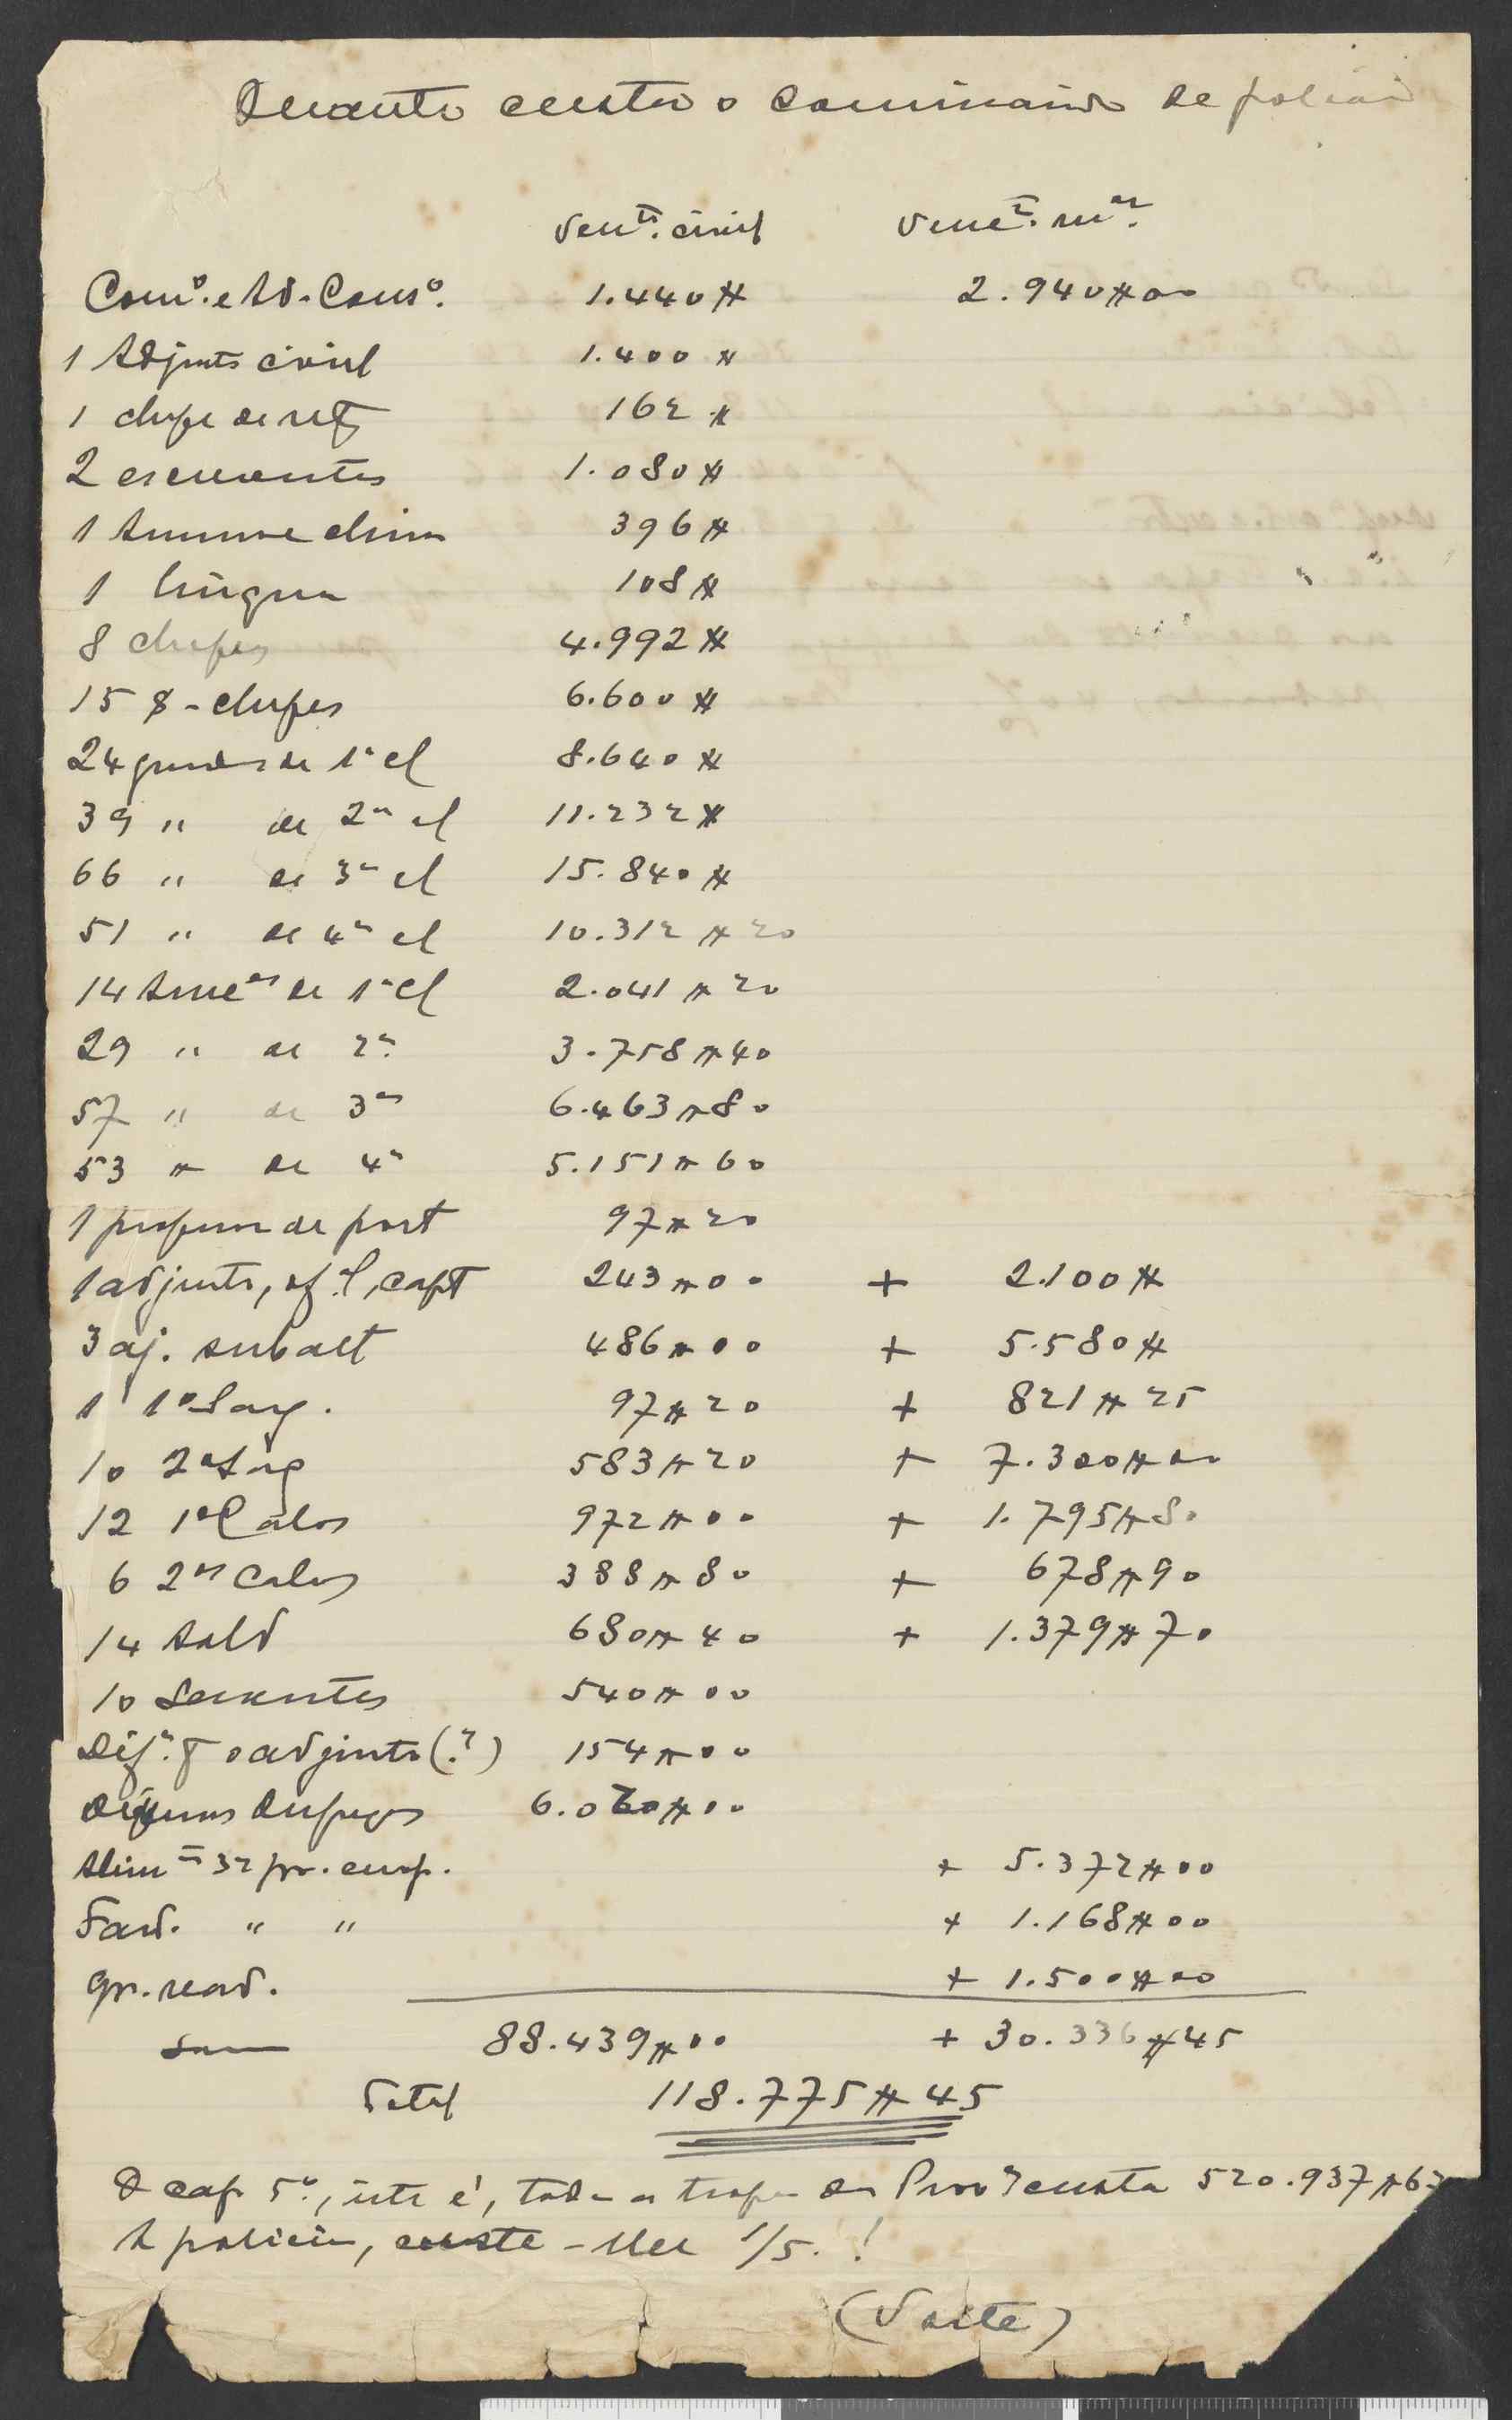 Quanto custa o commando de policia
Venᵗᵒ. civil Vencᵗᵒ. mᵃʳ.
Comᵒ. e Ad. Consᵒ. 1.440$ 2.940$00
1 Adjunto civil 1.400$
1 chefe de 162$
2 escreventes 1.080$
1 china 396$
1 lingua 108$
8 chefes 4.992$
15 s-chefes 6.600$
24 guardas de 1ª cl 8.640$
39 " de 2ª cl 11.232$
66 " de 3ª cl 15.840$
51 " de 4ª cl 10.312$20
14 de 1ª cl 2.041$20
29 " de 2ª 3.758$40
57 " de 3ª 6.463$80
53 " de 4ª 5.151$60
1 professor de port 97$20
1 adjunto, of.l, capt 243$00 + 2.100$
3 aj. subalt 486$00 + 5.580$
1 1º Sarg. 97$20 + 821$25
10 2ºˢ Sarg 583$20 + 7.300$00
12 1ºˢ Cabos 972$00 + 1.795$80
6 2ºˢ Cabos 388$80 + 678$90
14 Sold 680$40 + 1.379$70
10 Serventes 540$00
Difª. o adjunto (?) 154$00
Despezas 6.0 $00
Alimᵗ 32 pr. europ. + 5.372$00
Fard. " " + 1.168$00
Gr. read. + 1.500$00
Som 88.439$00 + 30.336$45
Total 118.775$45
O cap 5º, isto é, toda a tropa da Provª custa 520.937$6
A policia, custa-lhe 1/5. !
(Volte)